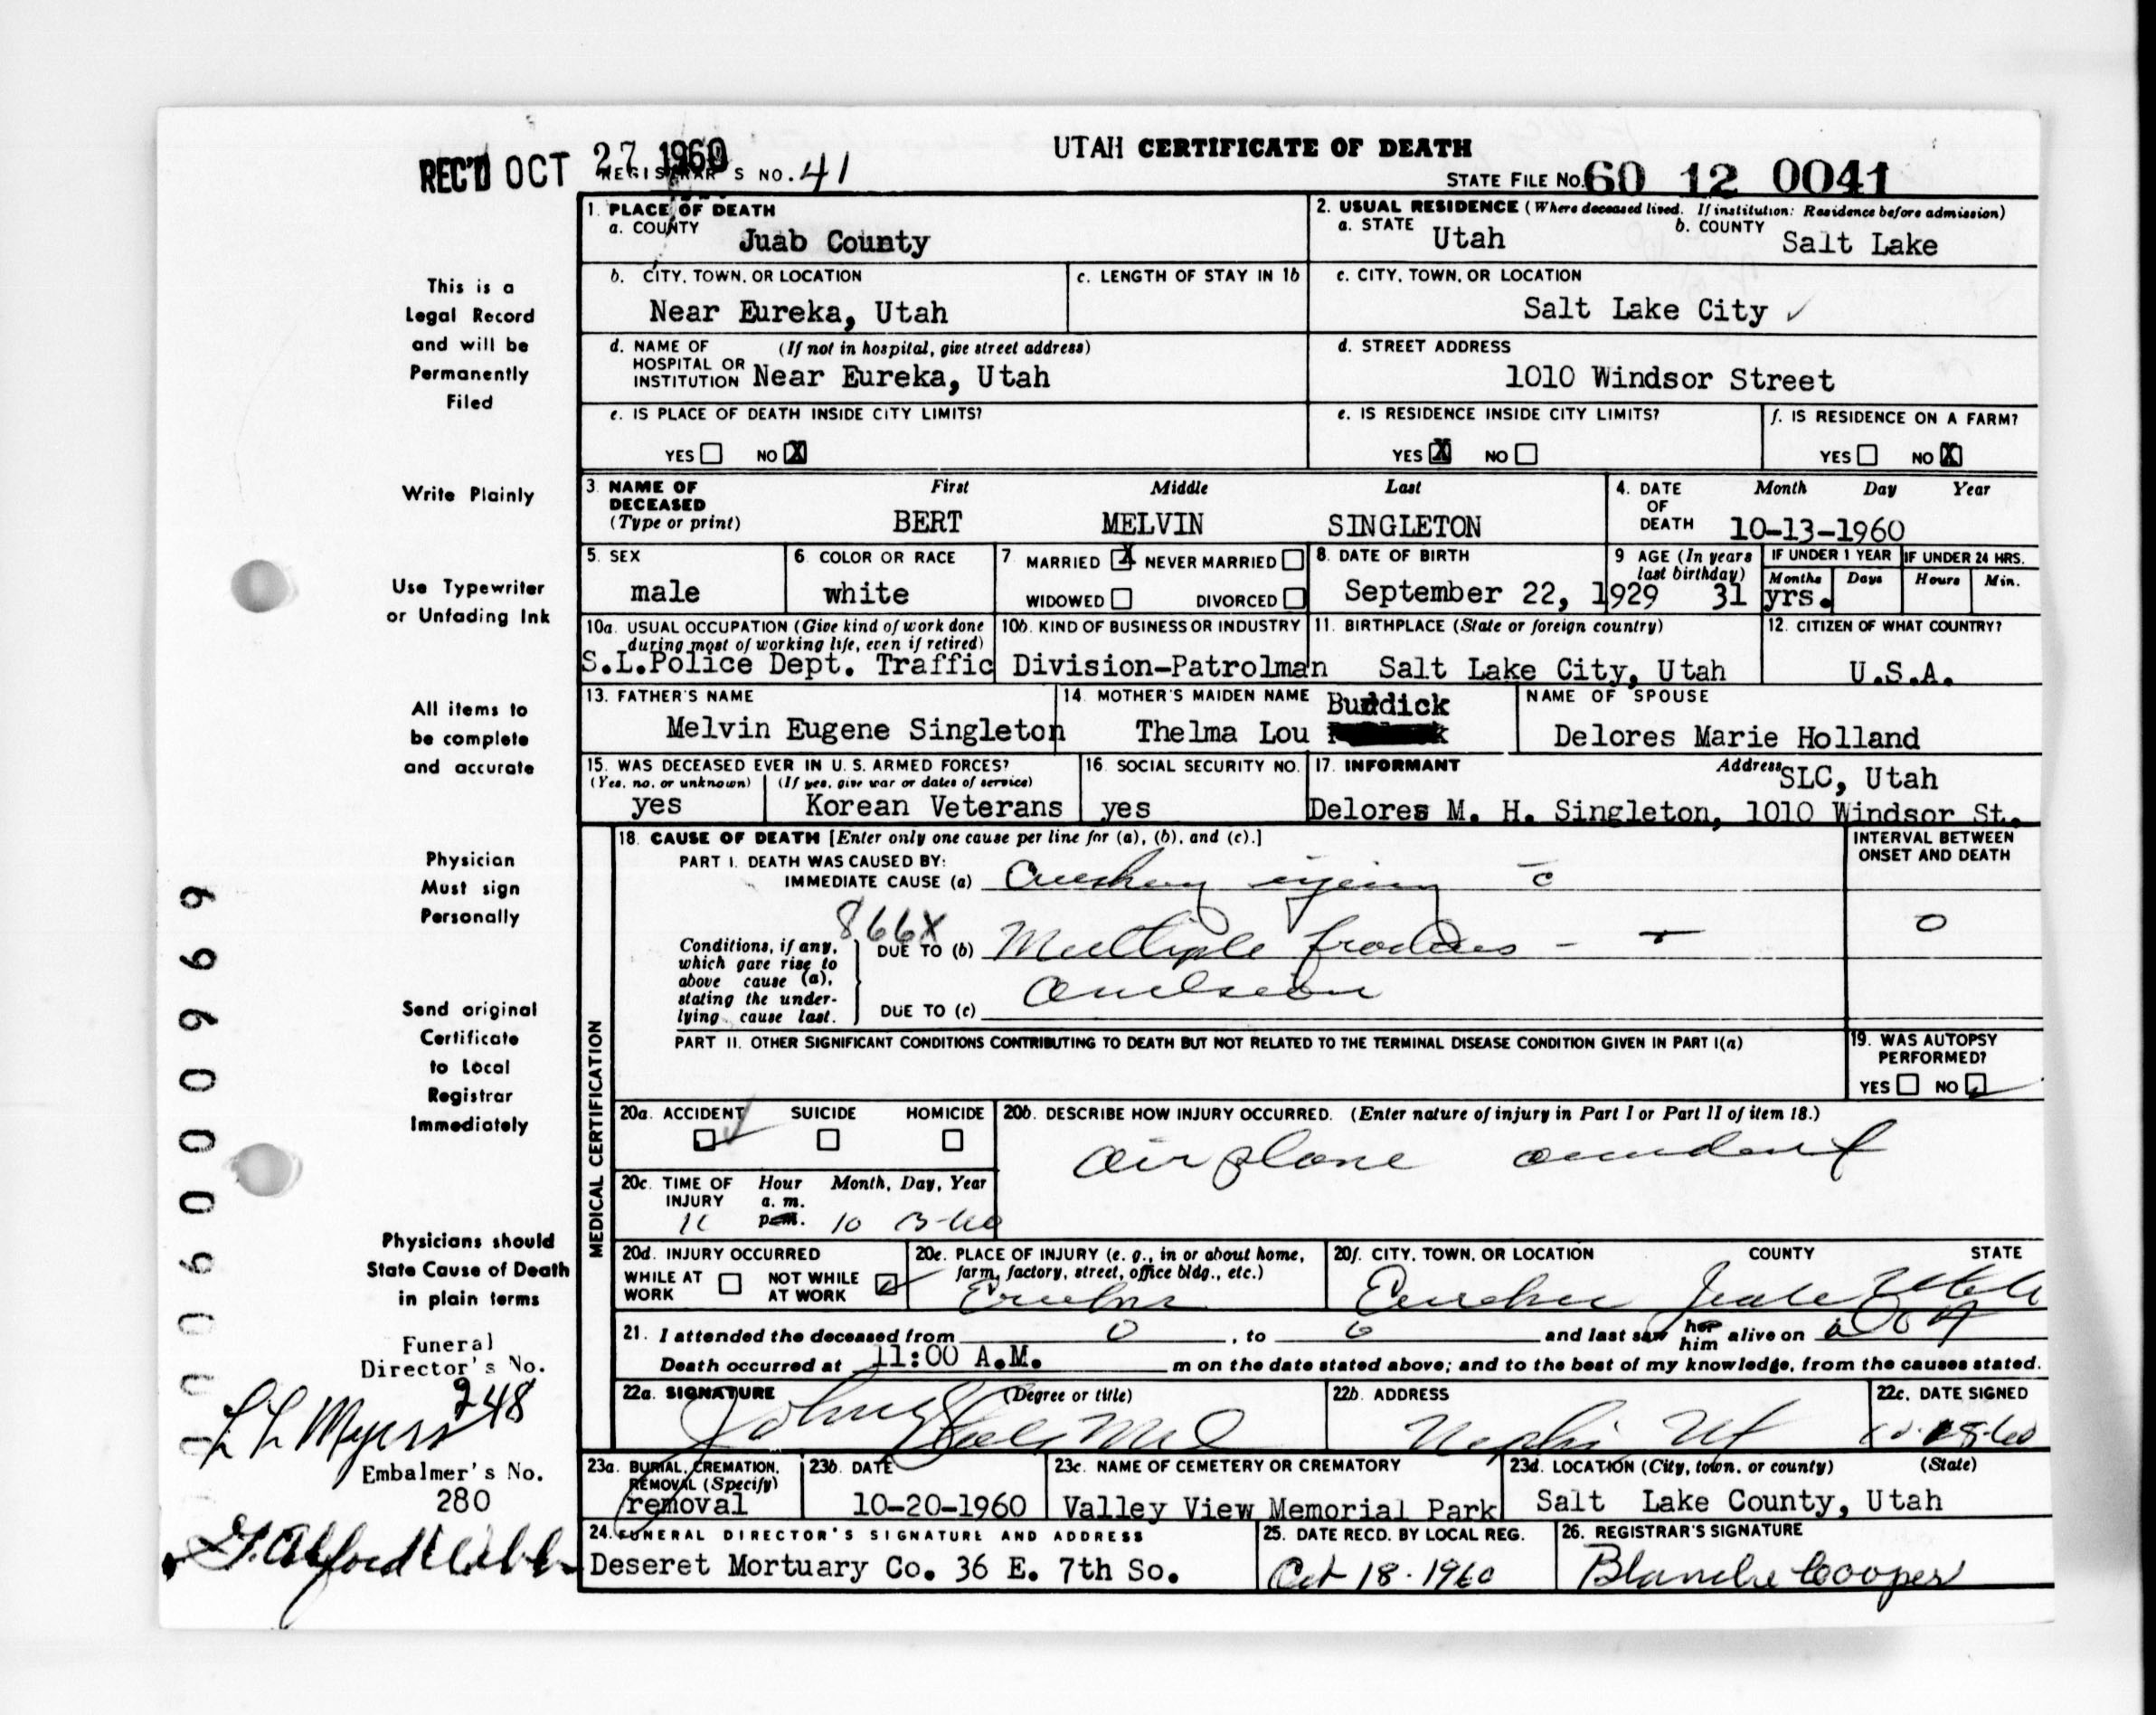 REC'D OCT 27 1960
UTAH CERTIFICATE OF DEATH
REGISTRAR'S NO. 41
STATE FILE NO. 60 12 0041
1. PLACE OF DEATH
a. COUNTY Juab County
2. USUAL RESIDENCE (Where deceased lived. If institution: Residence before admission)
a. STATE Utah b. COUNTY Salt Lake
b. CITY, TOWN, OR LOCATION
Near Eureka, Utah
c. LENGTH OF STAY IN 1b
c. CITY, TOWN, OR LOCATION
Salt Lake City ✓
d. NAME OF HOSPITAL OR INSTITUTION (If not in hospital, give street address)
Near Eureka, Utah
d. STREET ADDRESS
1010 Windsor Street
e. IS PLACE OF DEATH INSIDE CITY LIMITS?
YES NO X
e. IS RESIDENCE INSIDE CITY LIMITS?
YES X NO
f. IS RESIDENCE ON A FARM?
YES NO X
3. NAME OF DECEASED (Type or print)
First Middle Last
BERT MELVIN SINGLETON
4. DATE OF DEATH Month Day Year
10-13-1960
5. SEX
male
6. COLOR OR RACE
white
7. MARRIED X NEVER MARRIED
WIDOWED DIVORCED
8. DATE OF BIRTH
September 22, 1929
9 AGE (In years last birthday)
31 yrs.
IF UNDER 1 YEAR
Months Days
IF UNDER 24 HRS.
Hours Min.
10a. USUAL OCCUPATION (Give kind of work done during most of working life, even if retired)
10b. KIND OF BUSINESS OR INDUSTRY
S.L.Police Dept. Traffic Division-Patrolman
11. BIRTHPLACE (State or foreign country)
Salt Lake City, Utah
12. CITIZEN OF WHAT COUNTRY?
U.S.A.
13. FATHER'S NAME
Melvin Eugene Singleton
14. MOTHER'S MAIDEN NAME
Thelma Lou Burdick
NAME OF SPOUSE
Delores Marie Holland
15. WAS DECEASED EVER IN U. S. ARMED FORCES?
(Yes, no, or unknown) (If yes, give war or dates of service)
yes Korean Veterans
16. SOCIAL SECURITY NO.
yes
17. INFORMANT Address SLC, Utah
Delores M. H. Singleton, 1010 Windsor St.
MEDICAL CERTIFICATION
18. CAUSE OF DEATH [Enter only one cause per line for (a), (b), and (c).]
INTERVAL BETWEEN ONSET AND DEATH
PART I. DEATH WAS CAUSED BY:
IMMEDIATE CAUSE (a) Crushing injury c̄
866X
0
Conditions, if any, which gave rise to above cause (a), stating the underlying cause last.
DUE TO (b) Multiple
DUE TO (c)
PART II. OTHER SIGNIFICANT CONDITIONS CONTRIBUTING TO DEATH BUT NOT RELATED TO THE TERMINAL DISEASE CONDITION GIVEN IN PART I(a)
19. WAS AUTOPSY PERFORMED?
YES NO ✓
20a. ACCIDENT SUICIDE HOMICIDE
✓
20b. DESCRIBE HOW INJURY OCCURRED. (Enter nature of injury in Part I or Part II of item 18.)
airplane accident
20c. TIME OF INJURY Hour a. m. p. m. Month, Day, Year
11 10 13-60
20d. INJURY OCCURRED
WHILE AT WORK NOT WHILE AT WORK ✓
20e. PLACE OF INJURY (e. g., in or about home, farm, factory, street, office bldg., etc.)
20f. CITY, TOWN, OR LOCATION COUNTY STATE
Eureka Juab Utah
21. I attended the deceased from 0, to 0 and last saw her him alive on DOA
Death occurred at 11:00 A.M. m on the date stated above; and to the best of my knowledge, from the causes stated.
22a. SIGNATURE (Degree or title)
22b. ADDRESS
Nephi Ut
22c. DATE SIGNED
23a. BURIAL, CREMATION, REMOVAL (Specify)
removal
23b. DATE
10-20-1960
23c. NAME OF CEMETERY OR CREMATORY
Valley View Memorial Park
23d. LOCATION (City, town, or county) (State)
Salt Lake County, Utah
24. FUNERAL DIRECTOR'S SIGNATURE AND ADDRESS
Deseret Mortuary Co. 36 E. 7th So.
25. DATE RECD. BY LOCAL REG.
Oct 18-1960
26. REGISTRAR'S SIGNATURE
Blanche Cooper
This is a
Legal Record
and will be
Permanently
Filed
Write Plainly
Use Typewriter
or Unfading Ink
All items to
be complete
and accurate
Physician
Must sign
Personally
Send original
Certificate
to Local
Registrar
Immediately
Physicians should
State Cause of Death
in plain terms
Funeral
Director's No.
248
L L Myers
Embalmer's No.
280